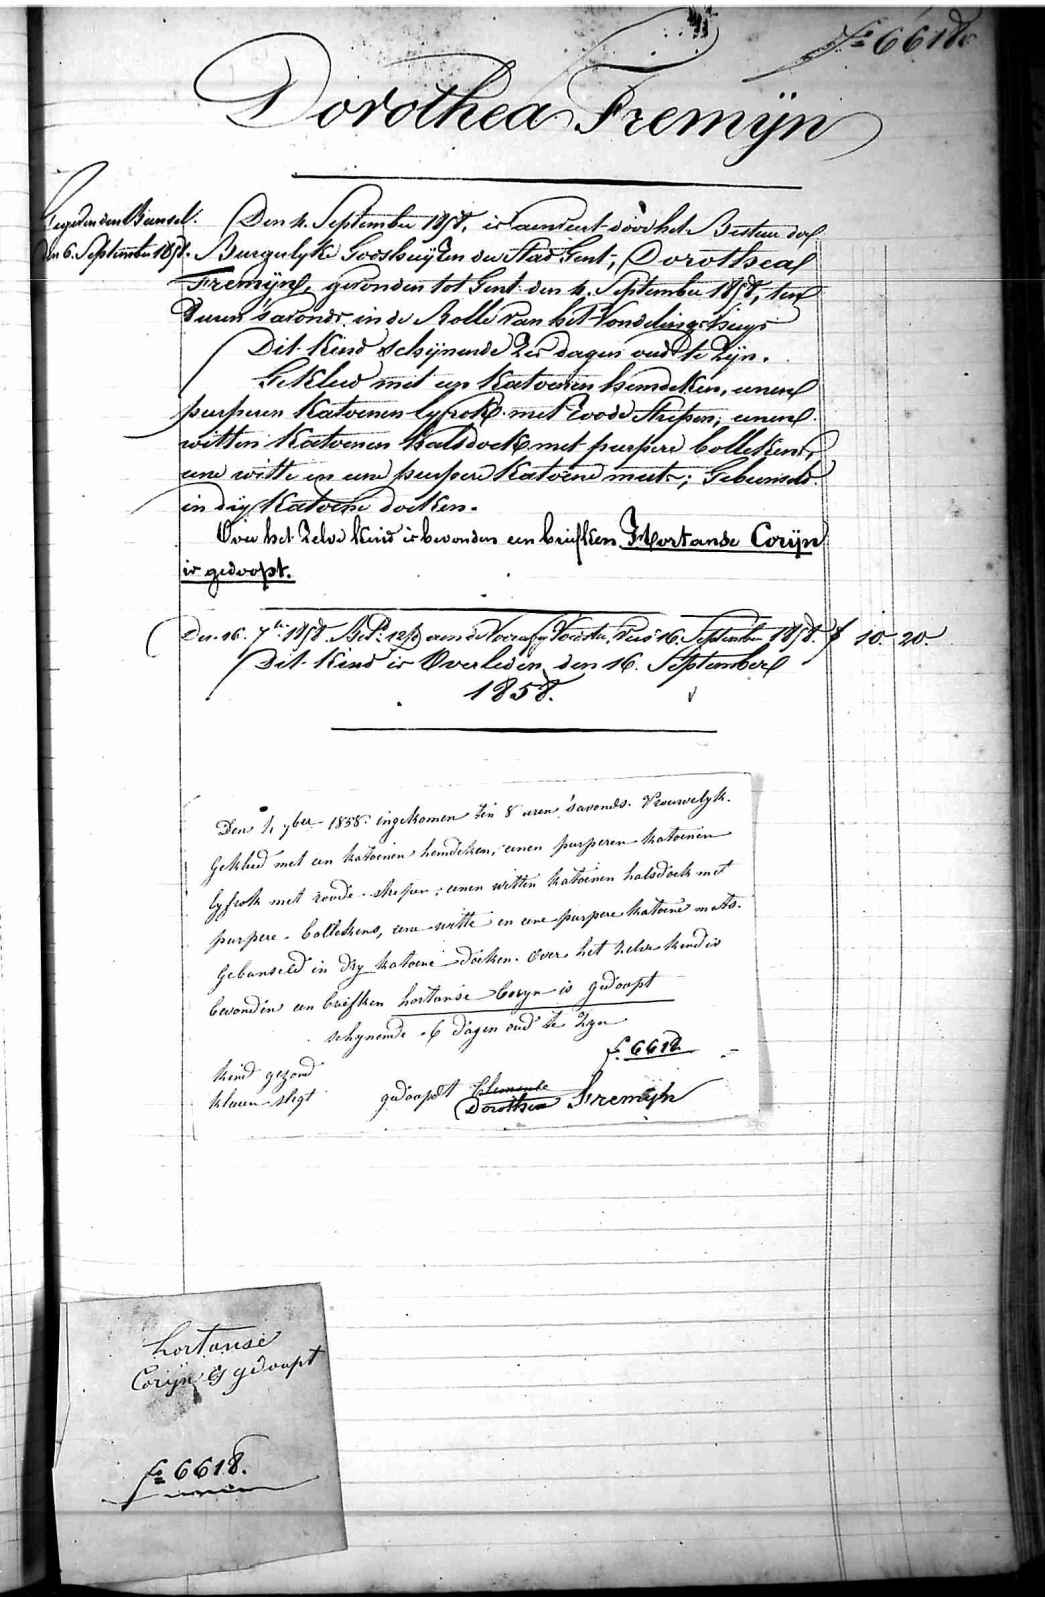 fº 6618
Dorothea Fremÿn
den Bundel.
den 6. September 1858.
Den 4. September 1858, is aenveert door het Bestuer der
Burgelyke Godshuyzen der Stad Gent, Dorothea
Fremÿn, gevonden tot Gent den 4. September 1858, ten
8 uren s'avonds in de Rolle van het Vondelingshuys
Dit Kind schijnende zes dagen oud te zijn.
Gekleed met een Katoenen hemdeken, eenen
purperen Katoenen lyfrok met roode strepen; eenen
witten Katoenen halsdoek met purpere bollekens,
eene witte en eene purpere Katoene muts; Gebunseld
in dry Katoene doeken.
Over het zelve kind is bevonden een briefken Hortanse Corÿn
is gedoopt.
Den 16. 7bre 1858. aen de Voorsz. Voedster, 16 September 1858. f 10. 20.
Dit Kind is Overleden den 16. September
1858.
Den 4 7ber 1858 ingekomen ten 8 uren s'avonds. Vrouwelyk.
Gekleed met een katoenen hemdeken, eenen purperen katoenen
lyfrok met roode strepen; eenen witten katoenen halsdoek met
purpere bollekens, eene witte en eene purpere katoene muts.
Gebunseld in dry katoene doeken. Over het zelve kind is
bevonden een briefken hortanse Coryn is gedoopt
schynende 6 dagen oud te zyn
fº 6618
kind gezond
kleeren slegt
gedoopt Clemence
Dorothea Fremÿn
hortanse
Corÿn is gedoopt
fº 6618.